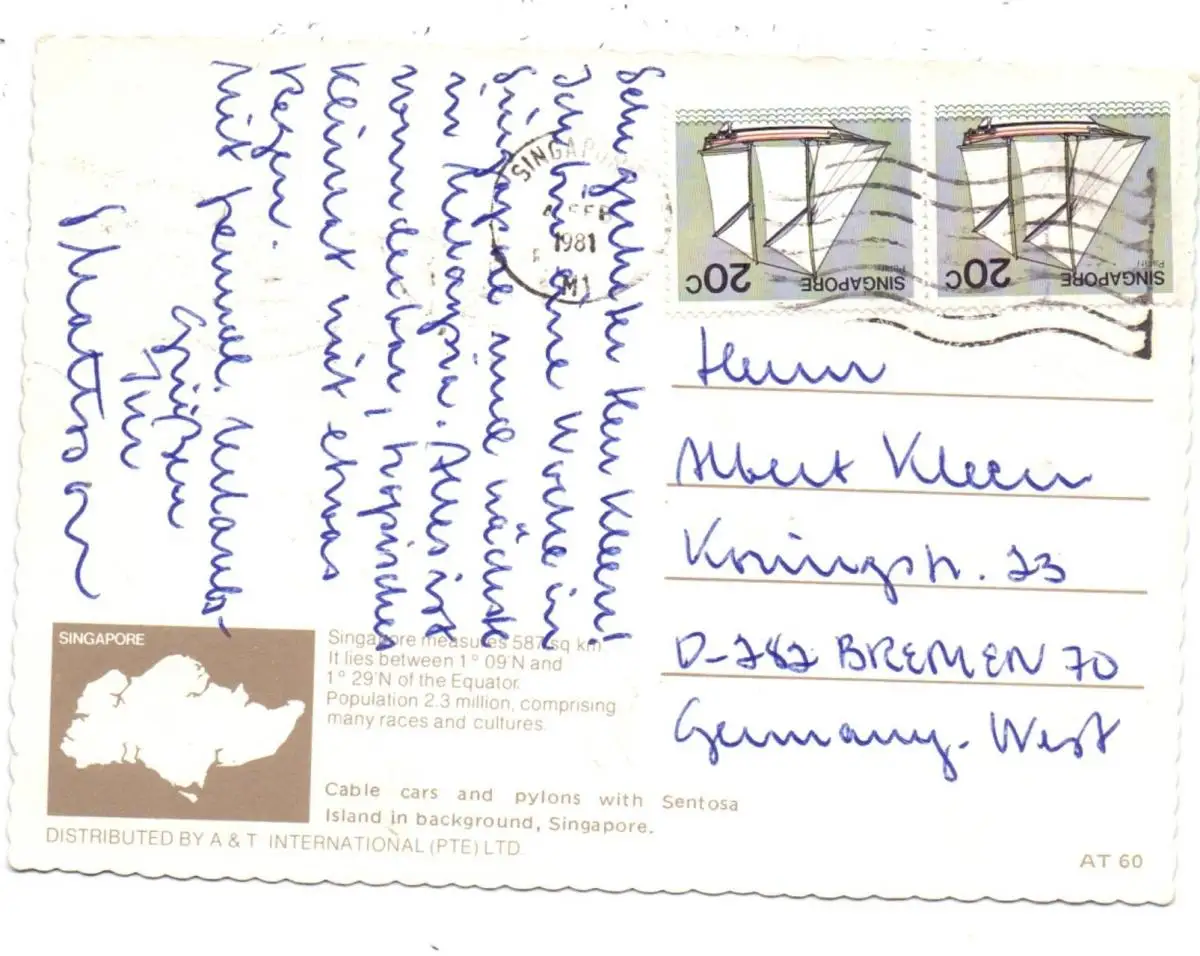 Sehr geehrter Herr Kleen!
Ich bin eine Woche in
Singapur und nächste
in Malaysia. Alles ist
wunderbar, tropisches
Klima mit etwas
Regen.
Mit freundl. Urlaubs-
Grüßen
Ihr
SINGAPORE
1981
SINGAPORE
Palari
20C
SINGAPORE
Palari
20C
Herrn
Albert Kleen
D-282 BREMEN 70
Germany-West
SINGAPORE
Singapore measures 587 sq km
It lies between 1° 09'N and
1° 29'N of the Equator.
Population 2.3 million, comprising
many races and cultures.
Cable cars and pylons with Sentosa
Island in background, Singapore.
DISTRIBUTED BY A & T INTERNATIONAL (PTE) LTD.
AT 60